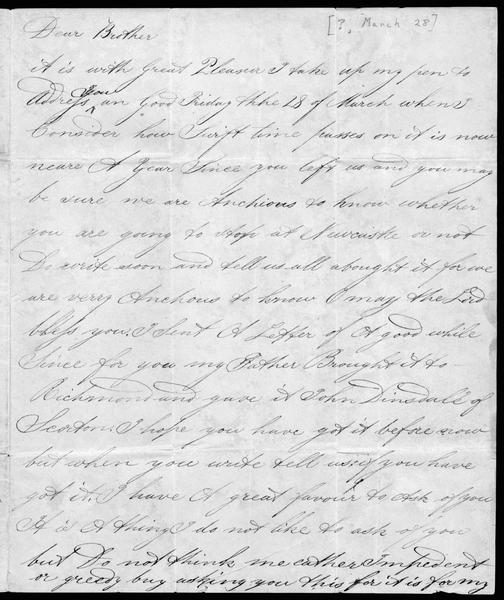 [?, March 28]
Dear Brother
it is with Great Pleasur I take up my pen to
Address you an Good Friday thhe 28 of March when I
Consider how Swift time passes on it is now
neare A Year Since you left us and you may
be sure we are Anchious to know whether
you are going to stop at Newcastle or not
Do write soon and tell us all abought it for we
are verry Anchous to know O may the Lord
bless you. I sent A Letter of A good while
Since for you my Father Brought it to
Richmond and gave it John Dinsdall of
Scorton I hope you have got it before now
but when you write tell us if you have
got it. I have A great favour to ask of you
it is A thing I do not like to ask of you
but Do not think me eather Impedent
or greedy buy asking you this for it is for my